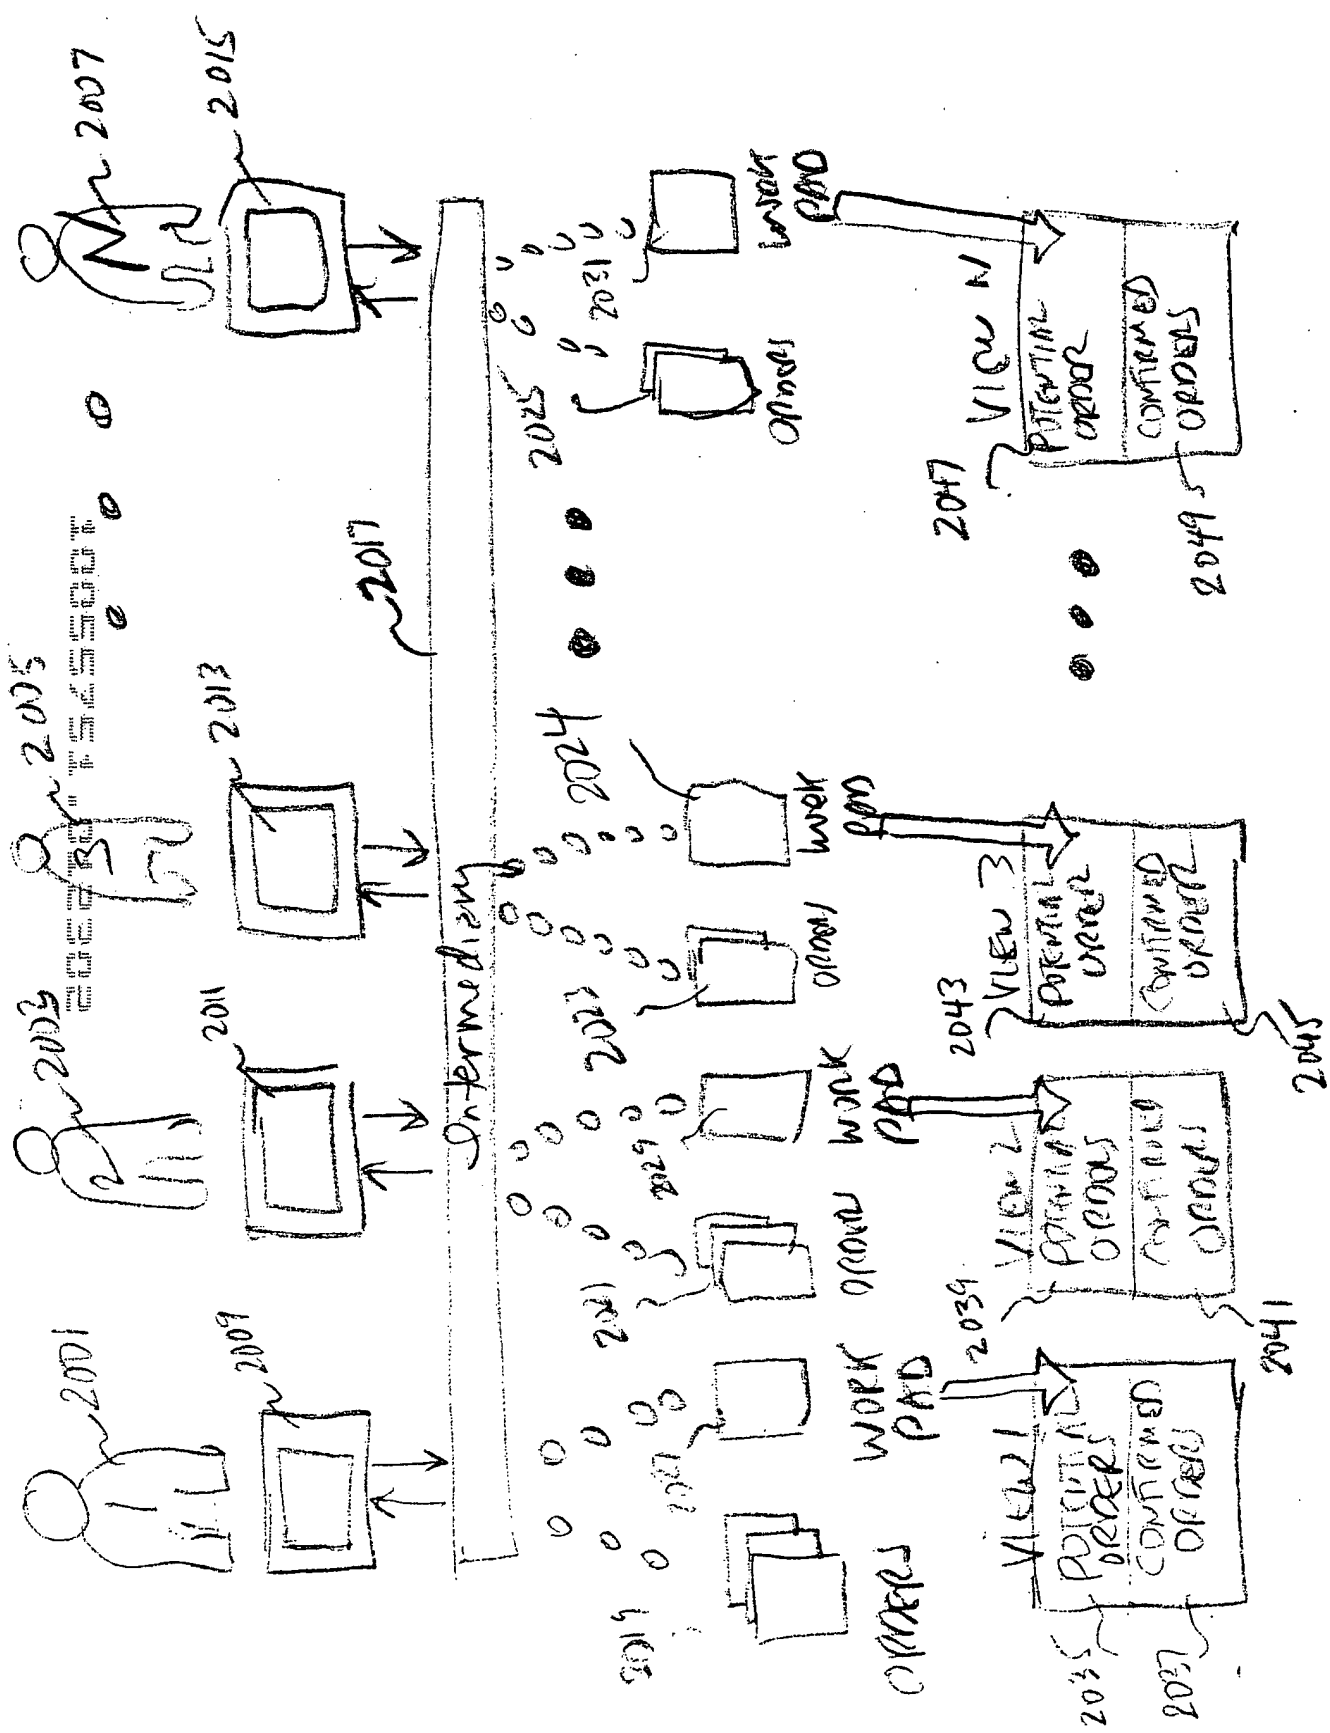 2001
2003
2005
2007
1
2
3
N
2009
2011
2013
2015
2017
Intermediary
2019
2027
2021
2029
2023
2024
2025
2031
ORDERS
WORK
PAD
ORDERS
WORK
PAD
ORDERS
WORK
PAD
ORDERS
WORK
PAD
VIEW 1
POTENTIAL
ORDERS
CONFIRMED
ORDERS
2035
2037
2039
VIEW 2
POTENTIAL
ORDERS
CONFIRMED
ORDERS
2041
2043
VIEW 3
POTENTIAL
ORDER
CONFIRMED
ORDER
2045
2047
VIEW N
POTENTIAL
ORDER
CONFIRMED
ORDERS
2049